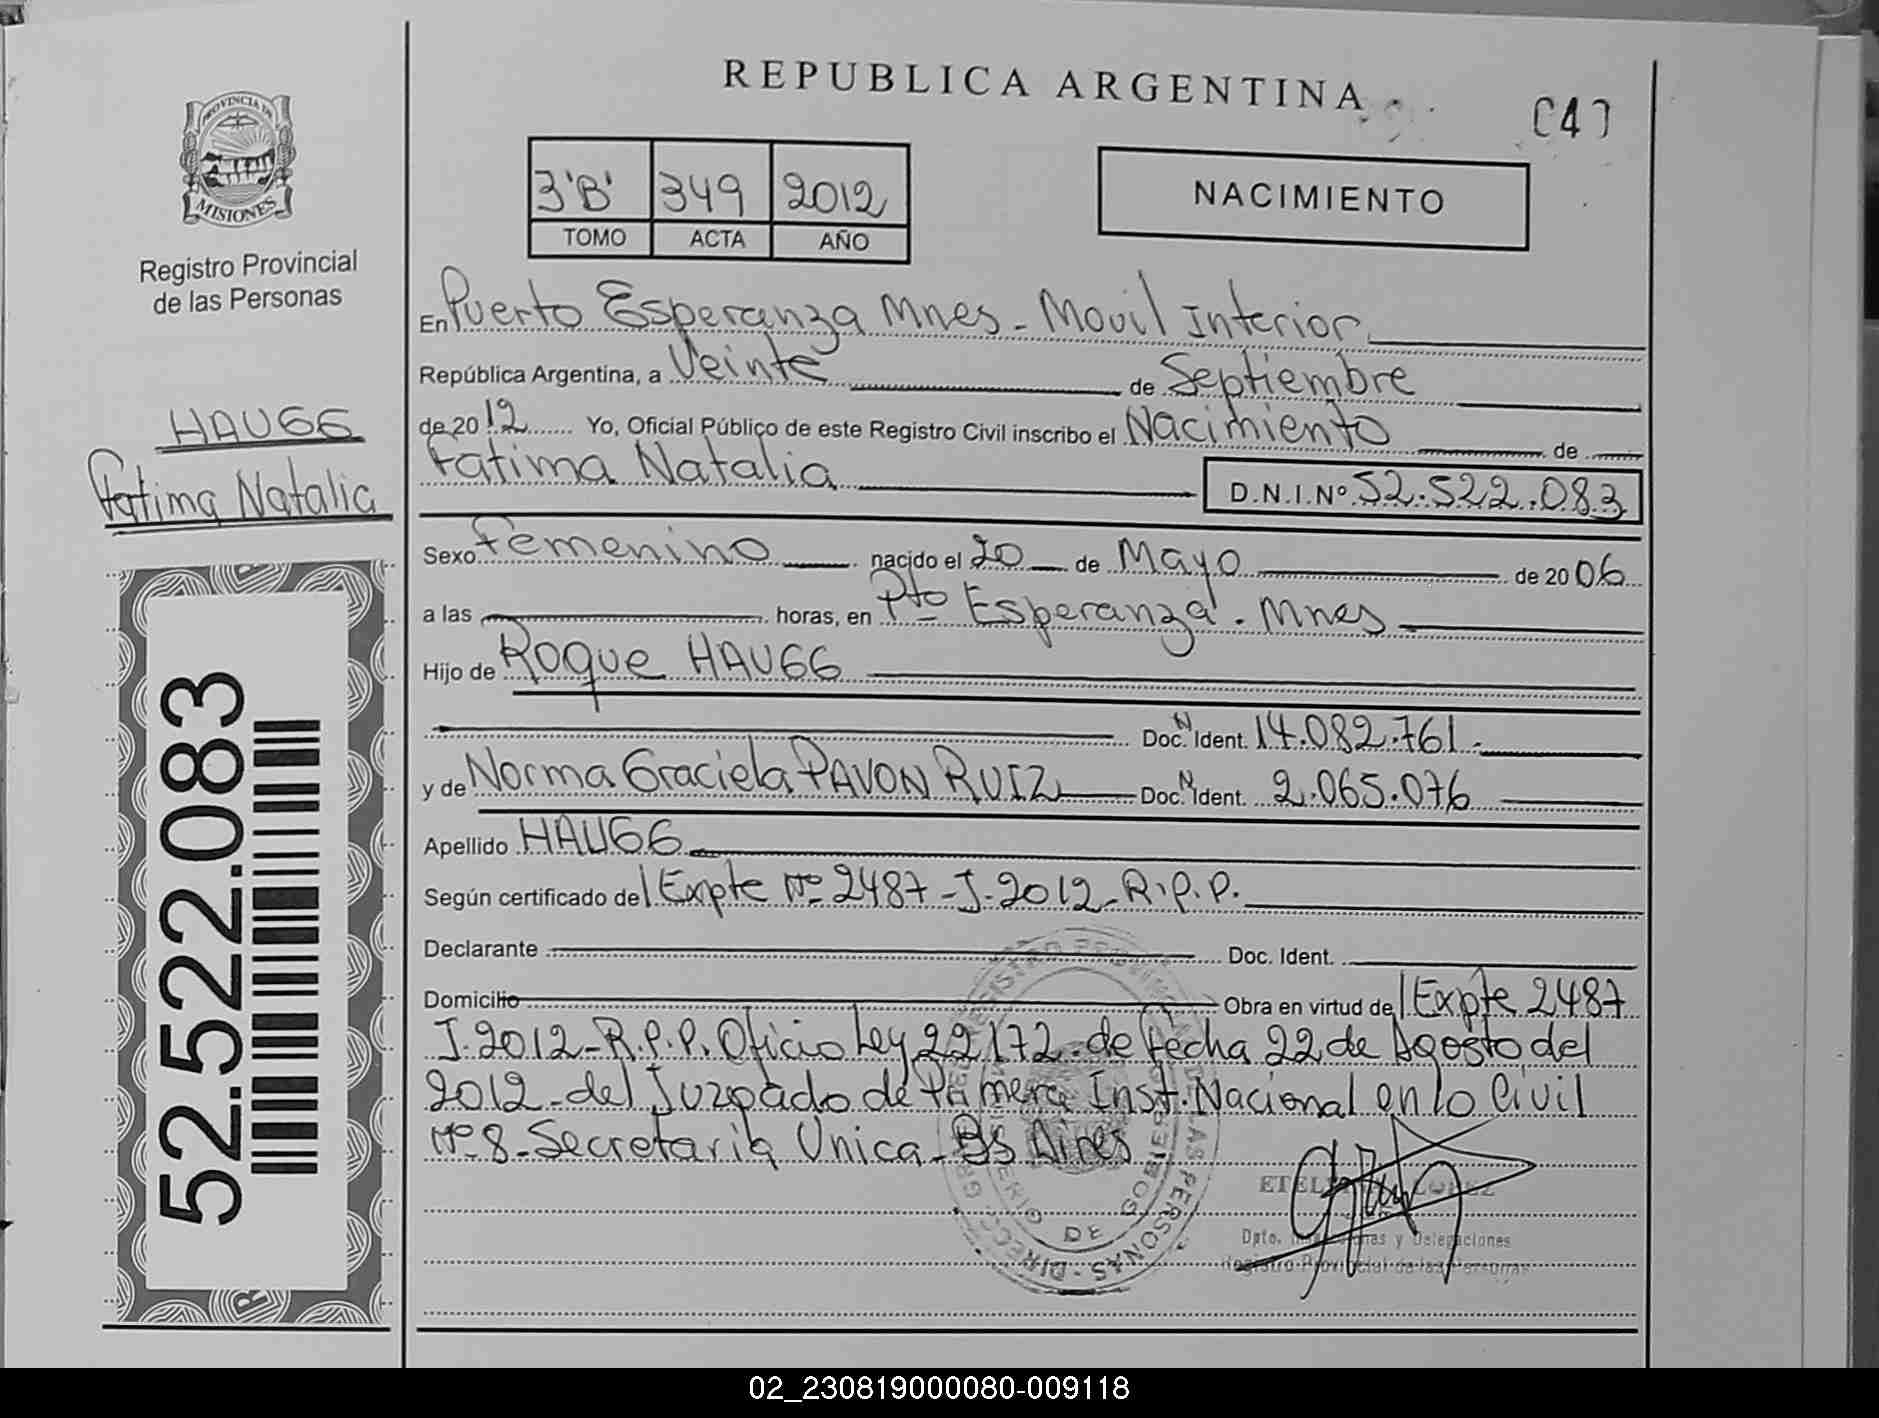 REPUBLICA ARGENTINA
PROVINCIA DE
MISIONES
Registro Provincial
de las Personas
3'B' 349 2012
TOMO ACTA AÑO
NACIMIENTO
HAUGG
Fatima Natalia
52.522.083
En Puerto Esperanza Mnes - Movil Interior
República Argentina, a Veinte de Septiembre
de 2012 Yo, Oficial Público de este Registro Civil inscribo el Nacimiento de
Fatima Natalia D.N.I.Nº 52.522.083
Sexo Femenino nacido el 20 de Mayo de 2006
a las horas, en Pto Esperanza - Mnes
Hijo de Roque HAUGG
Doc. N Ident. 14.082.761.-
y de Norma Graciela PAVON RUIZ Doc. N Ident. 2.065.076
Apellido HAUGG
Según certificado del Expte Nº 2487-J-2012-R.P.P.
Declarante Doc. Ident.
Domicilio Obra en virtud del Expte 2487
J-2012-R.P.P. Oficio Ley 22172-de fecha 22 de Agosto del
2012-del Juzgado de Primera Inst. Nacional en lo Civil
Nº 8-Secretaria Unica-Bs Aires
LOPEZ
Dpto. y Delegaciones
Registro Provincial de las Personas
02_230819000080-009118